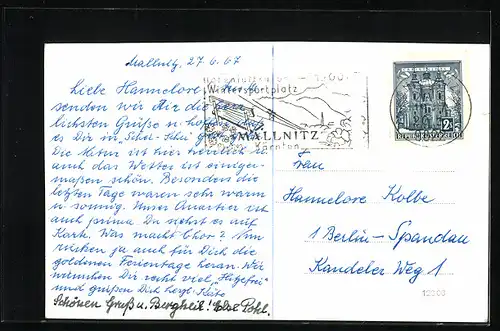 Mallnitz, 27.6.67
Liebe Hannelore
senden wir Dir die herz-
lichsten Grüße u. hoffen,
es Dir in
Die Natur ist hier herrlich u.
auch das Wetter ist einiger-
maßen schön. Besonders die
letzten Tage waren sehr warm
u. sonnig. Unser Quartier ist
auch prima. Du siehst es auf
Karte. Was macht Chor? Nun
rücken ja auch für Dich die
goldenen Ferientage heran. Wir
wünschen Dir recht viel „Hitzefrei"
und grüßen Dich herzl. Käte
Schönen Gruß u. Bergheil! Else Pohl.
Höhenluftkurort
Wintersportplatz
MALLNITZ
Kärnten
Frau
Hannelore Kolbe
1 Berlin-Spandau
Kandeler Weg 1
12000